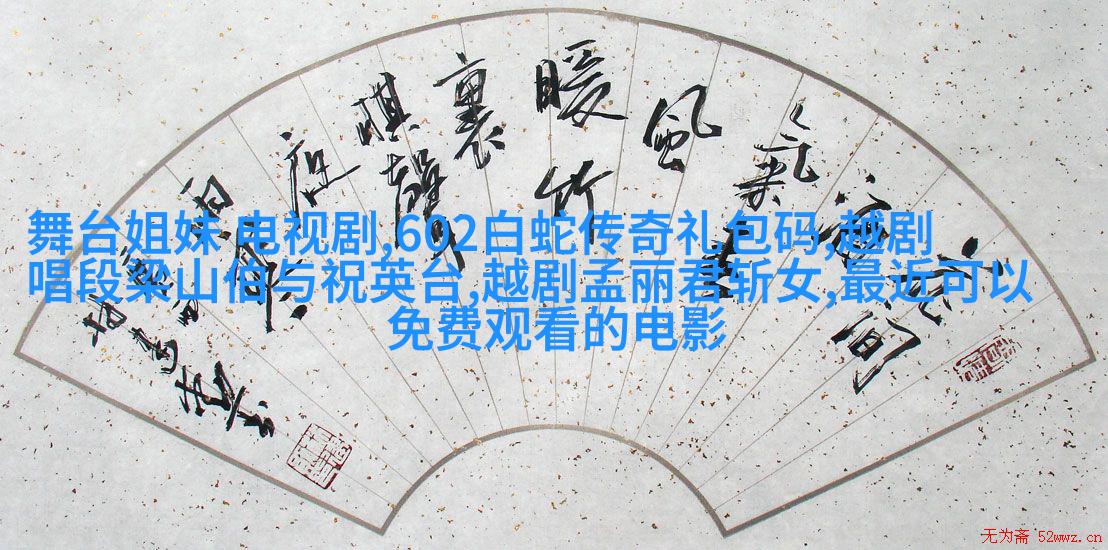 花間
酒
氣春
風
暖竹
裏
棋聲
夜
雨寒
舞台姐妹 电视剧,602白蛇传奇礼包码,越剧
唱段梁山伯与祝英台,越剧孟丽君斩女,最近可以
免费观看的电影
无为斋 52wwz.cn